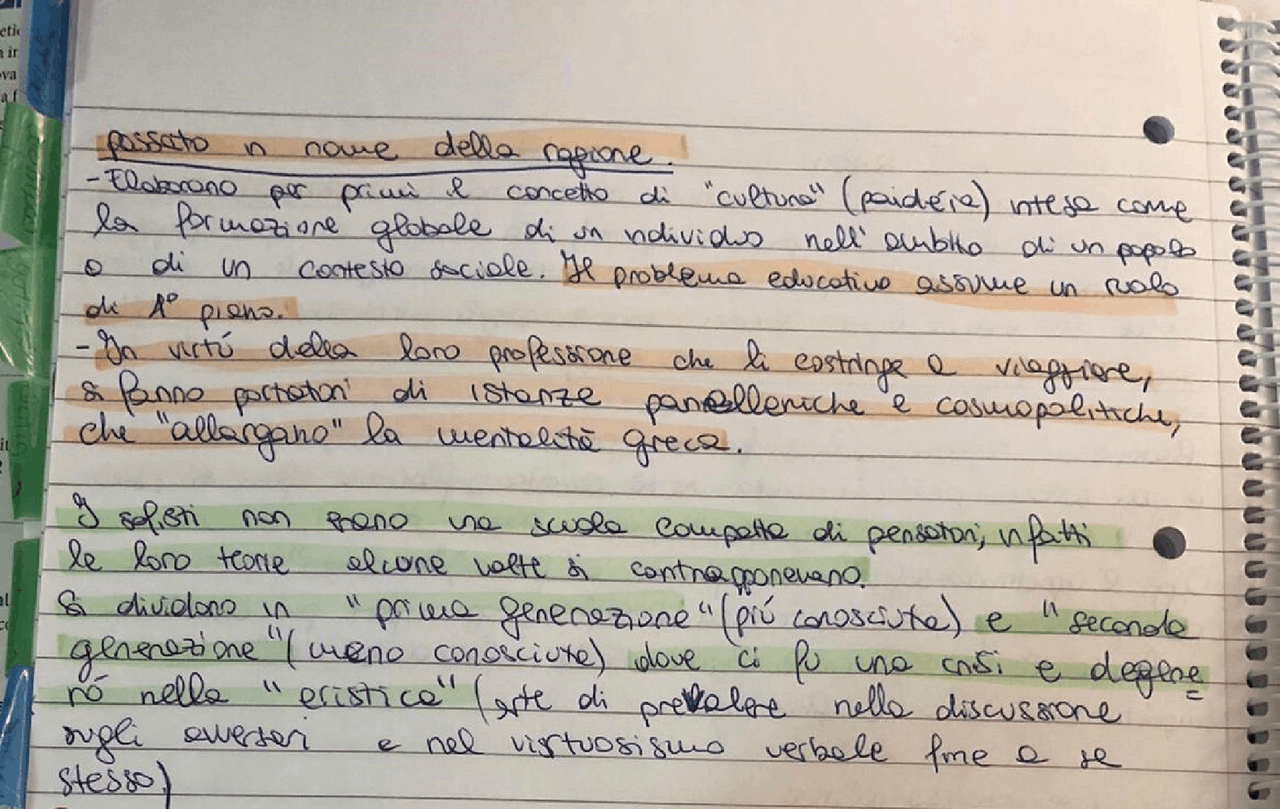 etic
ova
passato in nome della ragione.
- Elaborano per primi il concetto di "cultura" (paidéia) intesa come
la formazione globale di un individuo nell'ambito di un popolo
o di un contesto sociale. Il problema educativo assume un ruolo
di 1° piano.
- In virtú della loro professione che li costringe a viaggiare,
si fanno portatori di istanze panelleniche e cosmopolitiche,
che "allargano" la mentalità greca.
I sofisti non erano una scuola compatta di pensatori, infatti
le loro teorie alcune volte si contrapponevano.
Si dividono in "prima generazione" (piú conosciuta) e "seconda
generazione" (meno conosciuta) dove ci fu una crisi e degene
ró nella "eristica" (arte di prevalere nella discussione
sugli avversari e nel virtuosismo verbale fine a se
stesso)